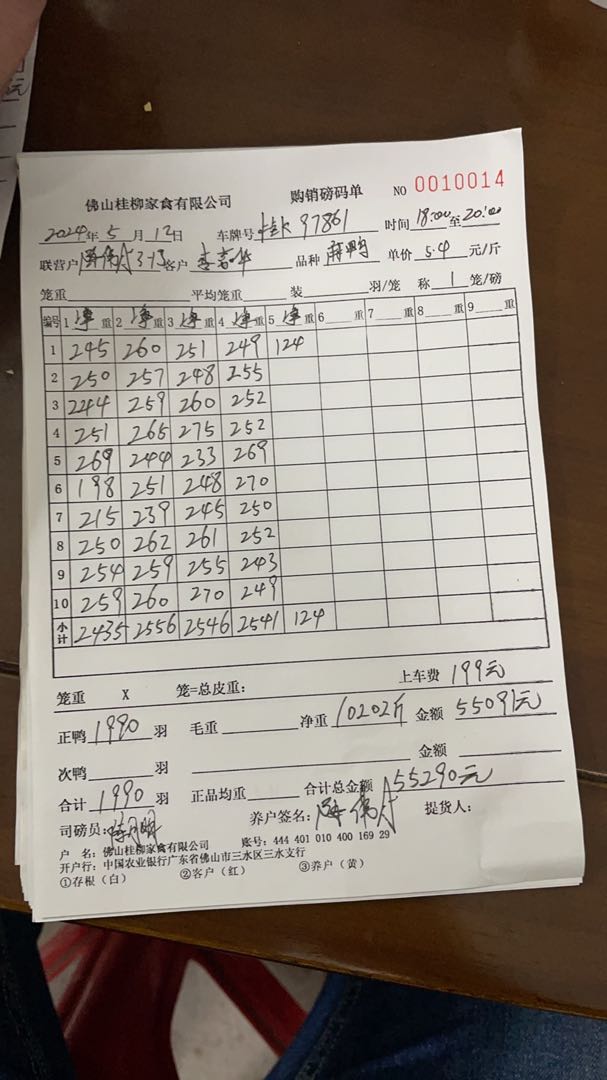 佛山桂柳家禽有限公司 购销磅码单 NO 0010014
2024年5月12日 车牌号 桂K 97861 时间 18:00至20:00
联营户 3-13 客户 品种 单价 5.4 元/斤
笼重 平均笼重 装 羽/笼 称 1 笼/磅
编号 1 净重 2 净重 3 净重 4 净重 5 净重 6 重 7 重 8 重 9 重
1 245 260 251 249 124
2 250 257 248 255
3 244 259 260 252
4 251 265 275 252
5 269 244 233 269
6 198 251 248 270
7 215 239 245 250
8 250 262 261 252
9 254 259 255 243
10 259 260 270 249
小计 2435 2556 2546 2541 124
笼重 X 笼=总皮重： 上车费 199元
正鸭 1990 羽 毛重 净重 10202斤 金额 55091元
次鸭 羽 金额
合计 1990 羽 正品均重 合计总金额 55290元
司磅员： 养户签名： 提货人：
户 名：佛山桂柳家禽有限公司 账号：444 401 010 400 169 29
开户行：中国农业银行广东省佛山市三水区三水支行
①存根（白） ②客户（红） ③养户（黄）